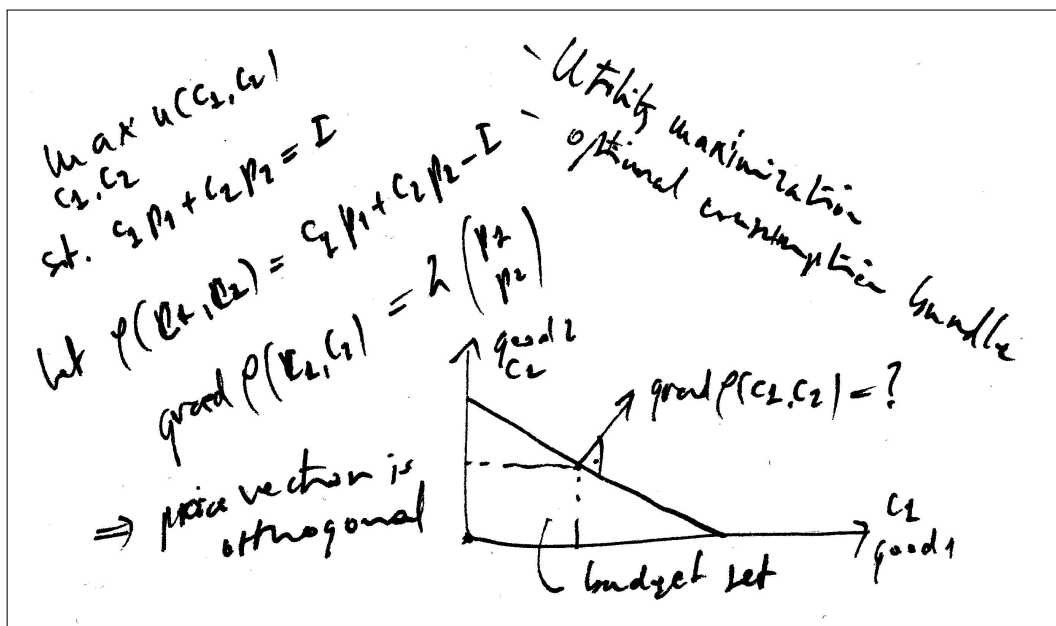 max u(c1,c2)
c1,c2
s.t. c1 p1 + c2 p2 = I
let φ(c1,c2) = c1 p1 + c2 p2 - I
grad φ(c1,c2) = λ (p1
p2)
⇒ price vector is
orthogonal
- Utility maximization
- optimal consumption bundle
good 2
c2
grad φ(c1,c2) = ?
c1
good 1
budget set